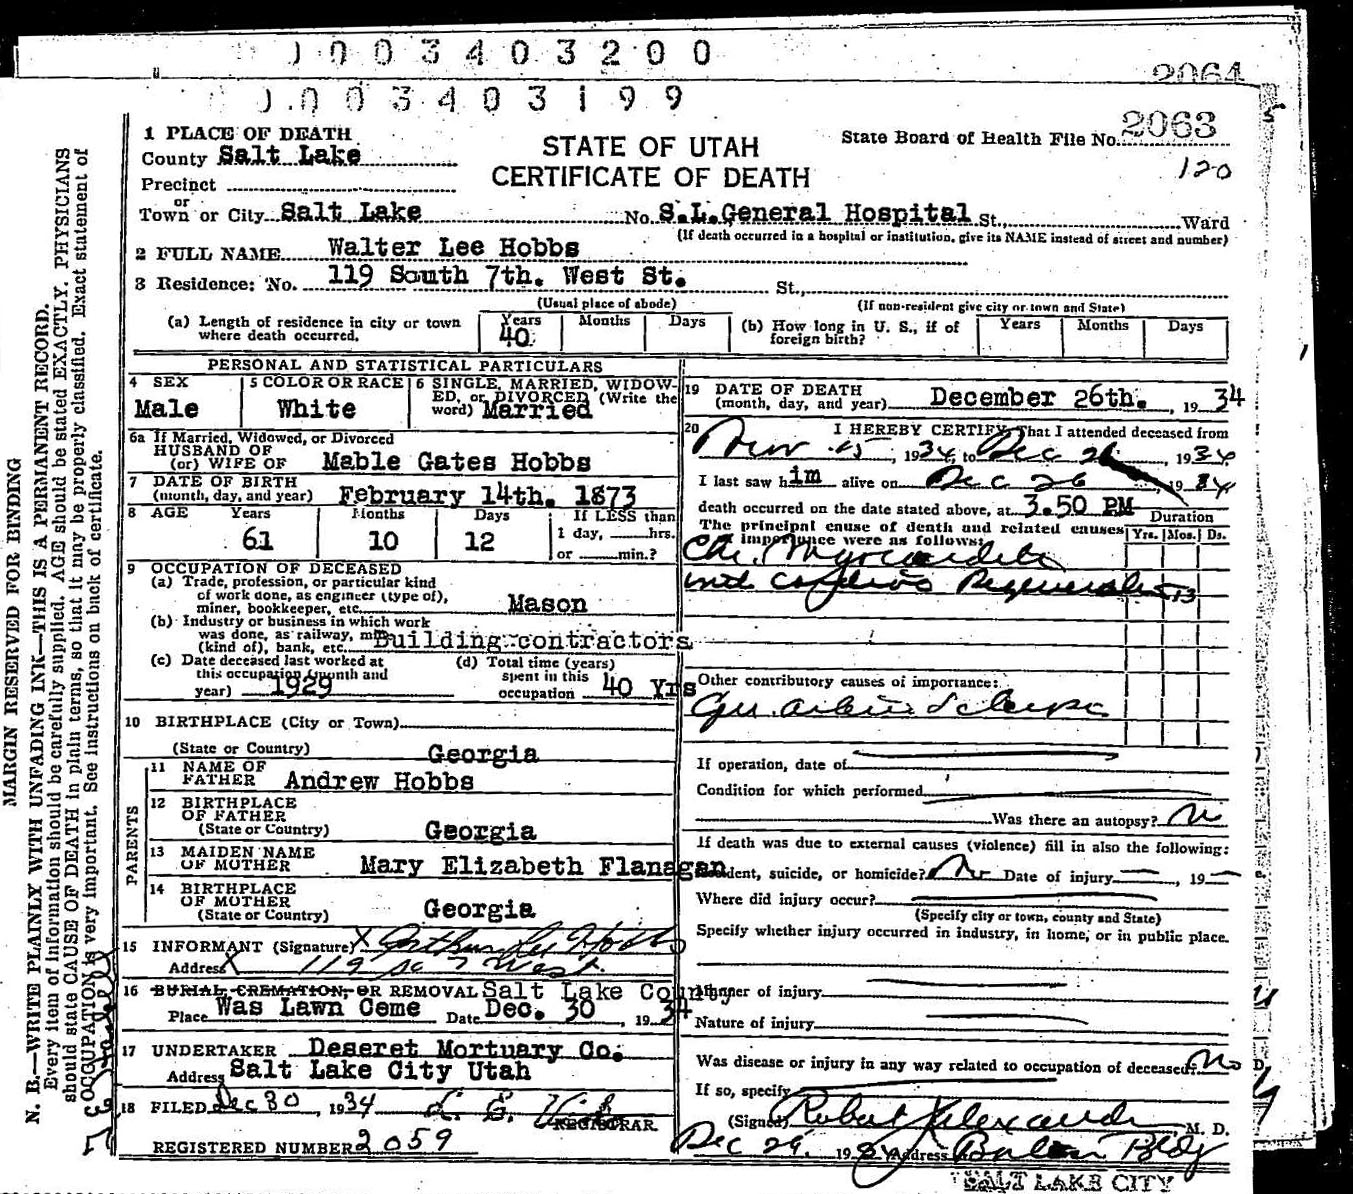 0003403200
2064
0003403199
State Board of Health File No. 2063
120
STATE OF UTAH
CERTIFICATE OF DEATH
1 PLACE OF DEATH
County Salt Lake
Precinct
or
Town or City Salt Lake No. S.L. General Hospital St., Ward
(If death occurred in a hospital or institution, give its NAME instead of street and number)
2 FULL NAME Walter Lee Hobbs
3 Residence: No. 119 South 7th. West St. St.,
(Usual place of abode) (If non-resident give city or town and State)
(a) Length of residence in city or town where death occurred. Years 40 Months Days (b) How long in U. S., if of foreign birth? Years Months Days
PERSONAL AND STATISTICAL PARTICULARS
4 SEX Male
5 COLOR OR RACE White
6 SINGLE, MARRIED, WIDOWED, or DIVORCED (Write the word) Married
6a If Married, Widowed, or Divorced
HUSBAND OF
(or) WIFE OF Mable Gates Hobbs
7 DATE OF BIRTH
(month, day, and year) February 14th. 1873
8 AGE Years Months Days If LESS than
61 10 12 1 day, hrs.
or min.?
9 OCCUPATION OF DECEASED
(a) Trade, profession, or particular kind
of work done, as engineer (type of),
miner, bookkeeper, etc. Mason
(b) Industry or business in which work
was done, as railway,
(kind of), bank, etc. Building contractors
(c) Date deceased last worked at
this occupation (month and
year) 1929
(d) Total time (years)
spent in this
occupation 40 Yrs
10 BIRTHPLACE (City or Town)
(State or Country) Georgia
PARENTS
11 NAME OF
FATHER Andrew Hobbs
12 BIRTHPLACE
OF FATHER
(State or Country) Georgia
13 MAIDEN NAME
OF MOTHER Mary Elizabeth Flanagan
14 BIRTHPLACE
OF MOTHER
(State or Country) Georgia
15 INFORMANT (Signature) X Arthur Lee Hobbs
Address X 119 So 7 West.
16 BURIAL, CREMATION, OR REMOVAL Salt Lake County
Place Was Lawn Ceme Date Dec. 30, 1934
17 UNDERTAKER Deseret Mortuary Co.
Address Salt Lake City Utah
18 FILED Dec 30, 1934
REGISTRAR.
REGISTERED NUMBER 2059
19 DATE OF DEATH
(month, day, and year) December 26th., 1934
20 I HEREBY CERTIFY, That I attended deceased from
Nov. 15, 1934, to Dec 26, 1934
I last saw him alive on Dec 26, 1934
death occurred on the date stated above, at 3.50 PM
The principal cause of death and related causes
importance were as follows:
Duration
Yrs. Mos. Ds.
Chr. Myocarditis
Other contributory causes of importance:
If operation, date of
Condition for which performed
Was there an autopsy? No
If death was due to external causes (violence) fill in also the following:
Accident, suicide, or homicide? No Date of injury, 19
Where did injury occur?
(Specify city or town, county and State)
Specify whether injury occurred in industry, in home, or in public place.
Manner of injury
Nature of injury
Was disease or injury in any way related to occupation of deceased? No
If so, specify
(Signed) Robert Alexander M. D.
Dec 29. 1934 Address Bldg
SALT LAKE CITY
MARGIN RESERVED FOR BINDING
N. B.—WRITE PLAINLY WITH UNFADING INK—THIS IS A PERMANENT RECORD.
Every item of information should be carefully supplied. AGE should be stated EXACTLY. PHYSICIANS
should state CAUSE OF DEATH in plain terms, so that it may be properly classified. Exact statement of
OCCUPATION is very important. See instructions on back of certificate.